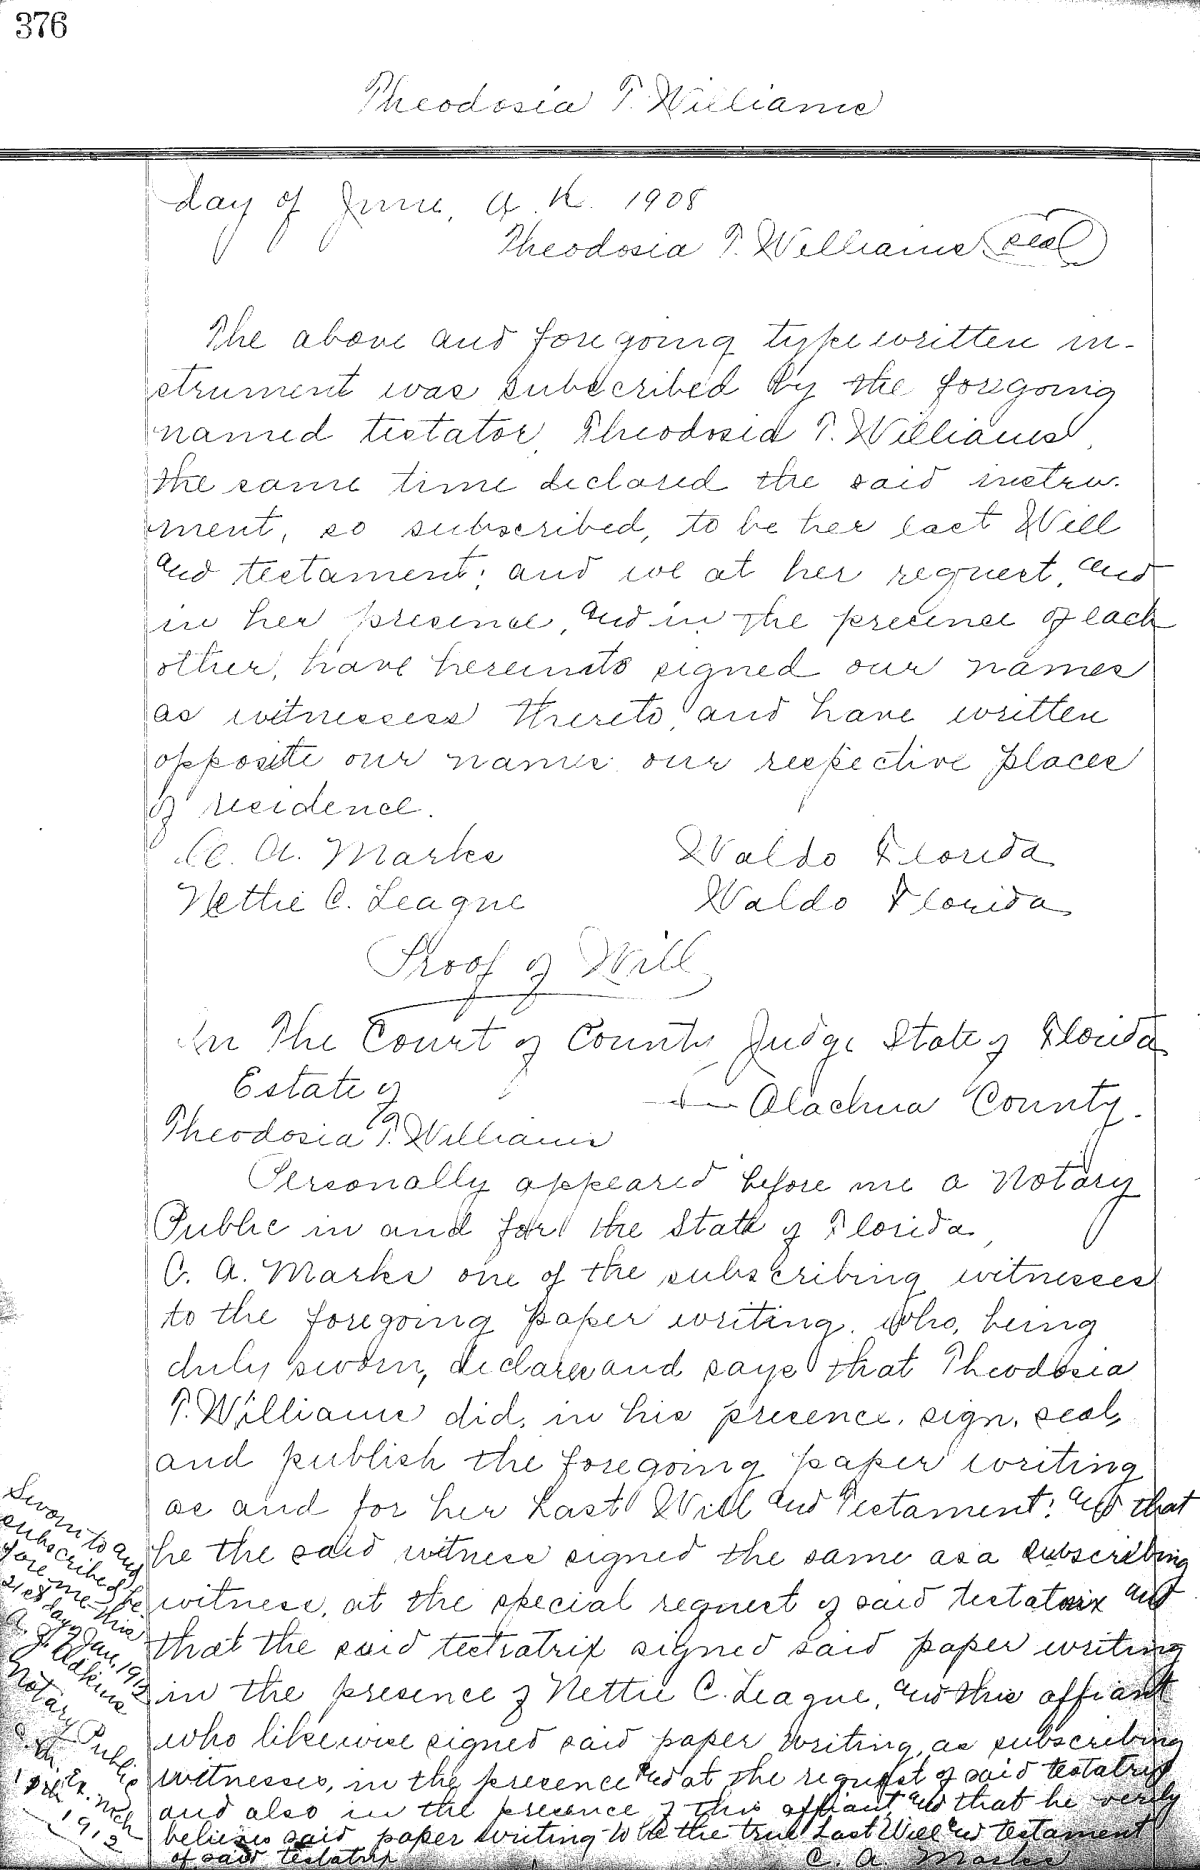 376
Theodosia T. Williams
day of June, A. D. 1908
Theodosia T. Williams seal
The above and foregoing typewritten in-
strument was subscribed by the foregoing
named testator, Theodosia T. Williams,
the same time declared the said instru-
ment, so subscribed, to be her last Will
and testament; and we at her request, and
in her presence, and in the presence of each
other, have hereunto signed our names
as witnessess thereto, and have written
opposite our names our respective places
of residence.
C. A. Marks Waldo Florida
Nettie C. League Waldo Florida
Proof of Will
In The Court of County Judge State of Florida
Estate of
Alachua County.
Theodosia T. Williams
Personally appeared before me a Notary
Public in and for the State of Florida,
C. A. Marks one of the subscribing witnesses
to the foregoing paper writing, who, being
duly sworn, declares and says that Theodosia
T. Williams did, in his presence, sign, seal,
and publish the foregoing paper writing
as and for her Last Will and Testament; and that
he the said witness signed the same as a subscribing
witness, at the special request of said testatrix and
that the said testatrix signed said paper writing
in the presence of Nettie C. League, and this affiant
who likewise signed said paper writing, as subscribing
witnesses, in the presence and at the request of said testatrix
and also in the presence of this affiant, and that he verily
believes said paper writing to be the true Last Will and testament
of said testatrix
C. A. Marks
Sworn to and
subscribed be
fore me this
21st day Jan. 1912
A. J. Adkins
Notary Public
1912